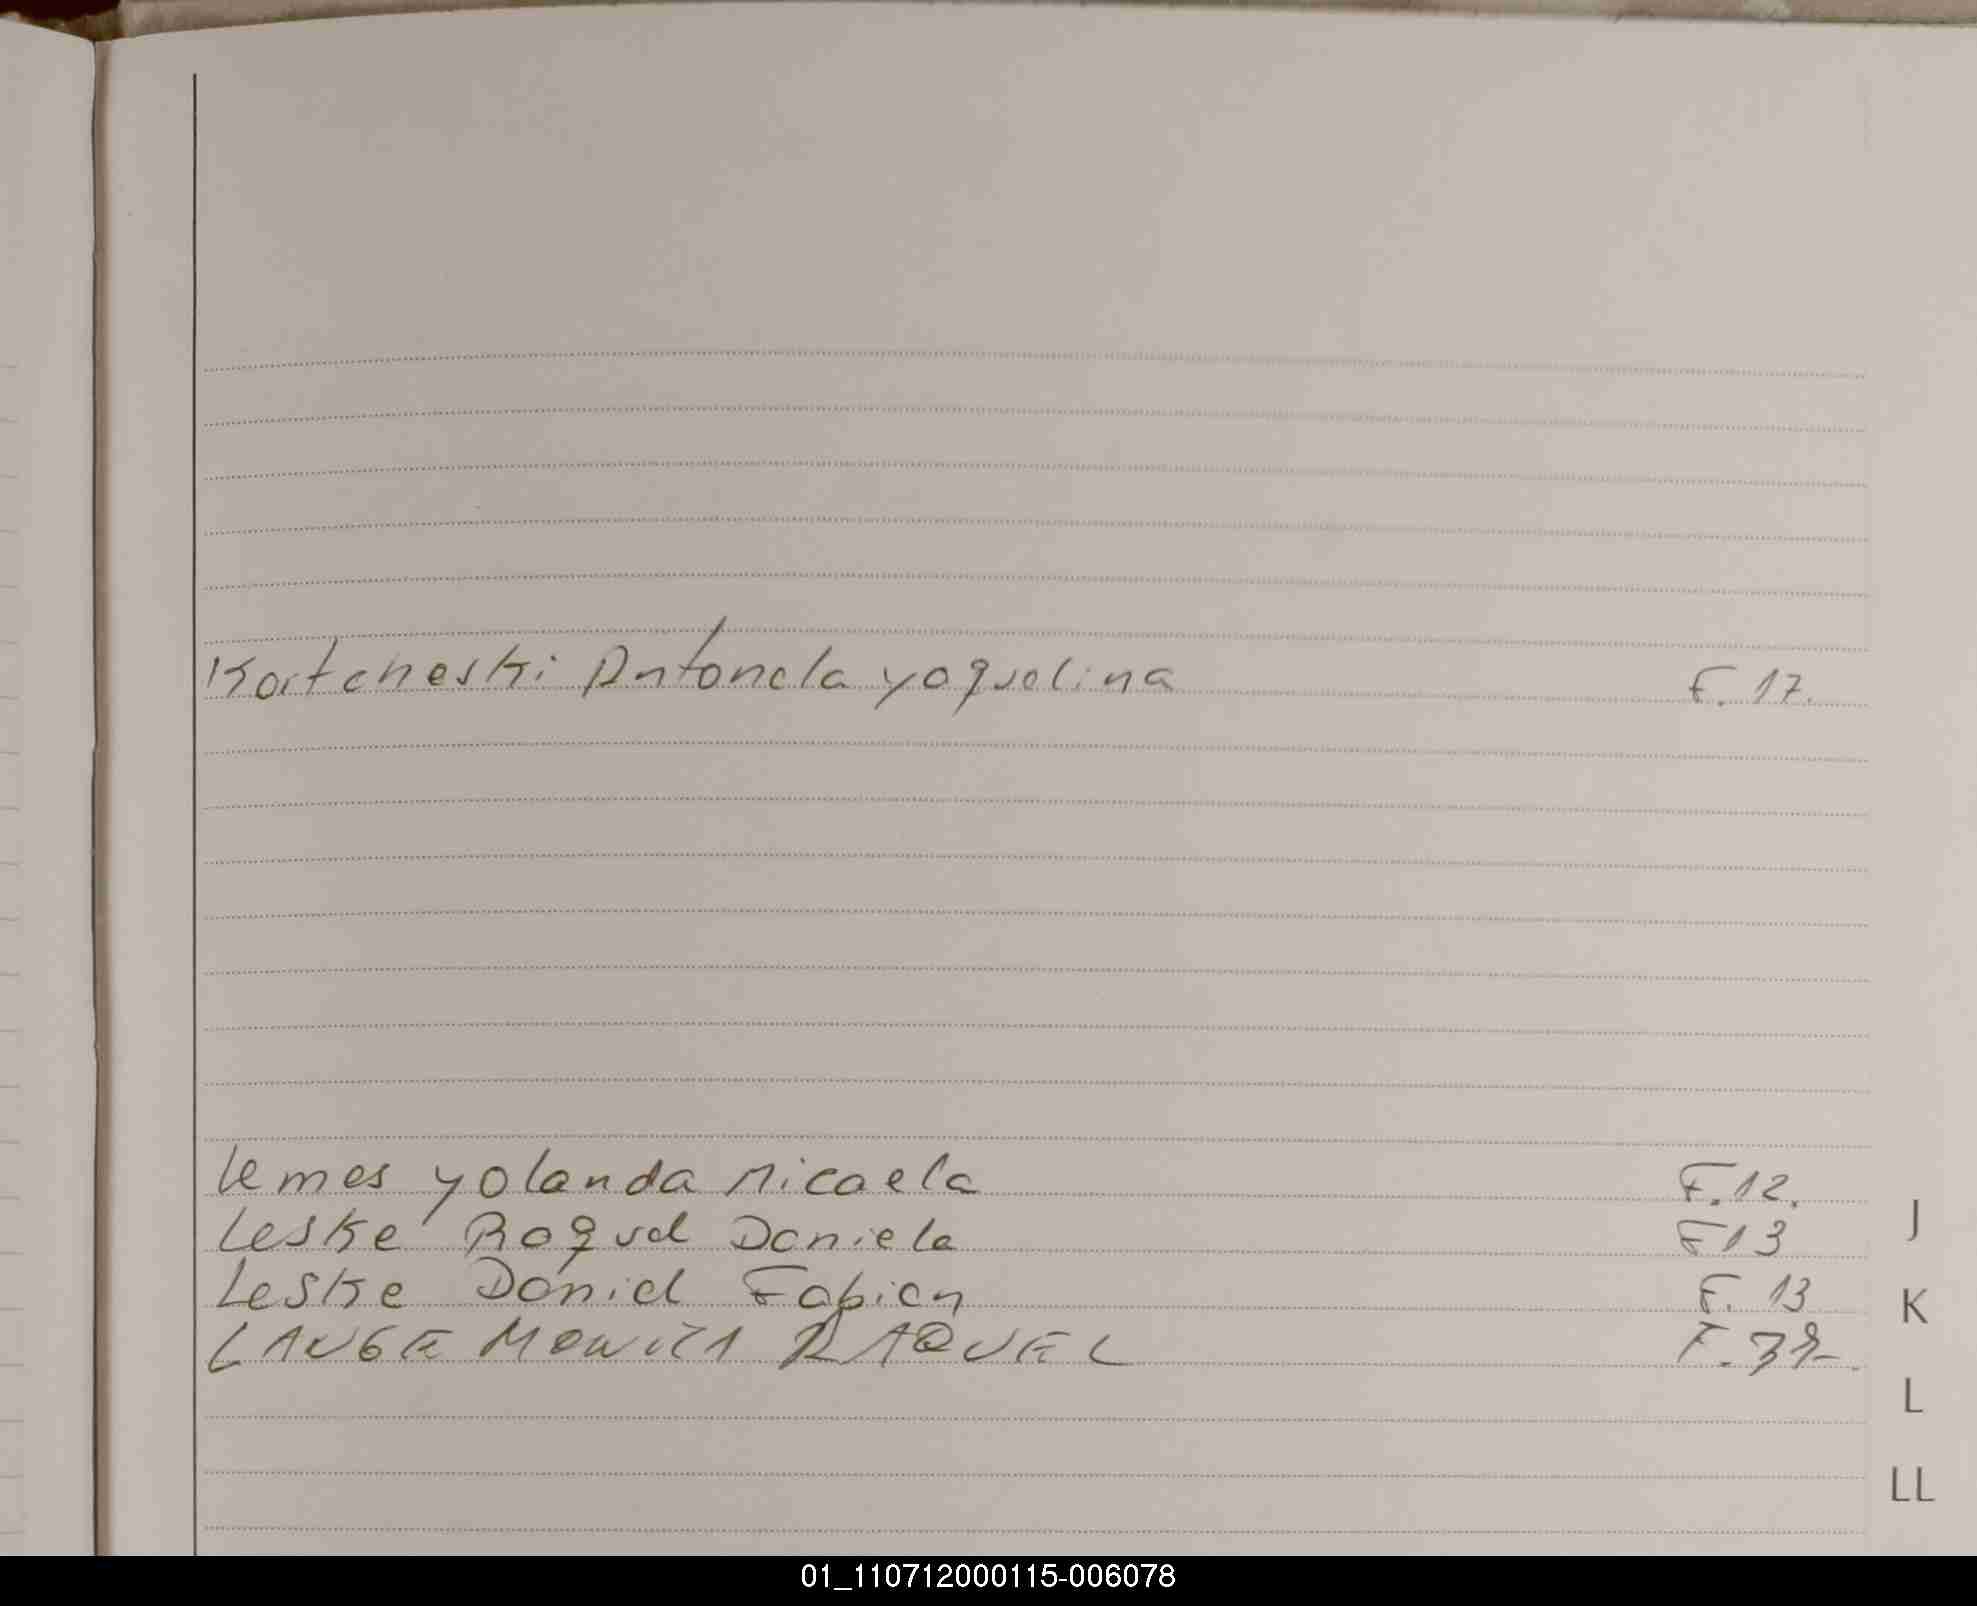 Kortcheski Antonela yaquelina F. 17.
Lemes yolanda Micaela F. 12.
Leske Raquel Daniela F 13
Leske Daniel Fabian F. 13
LANGE RAQUEL F.
J
K
L
LL
01_110712000115-006078